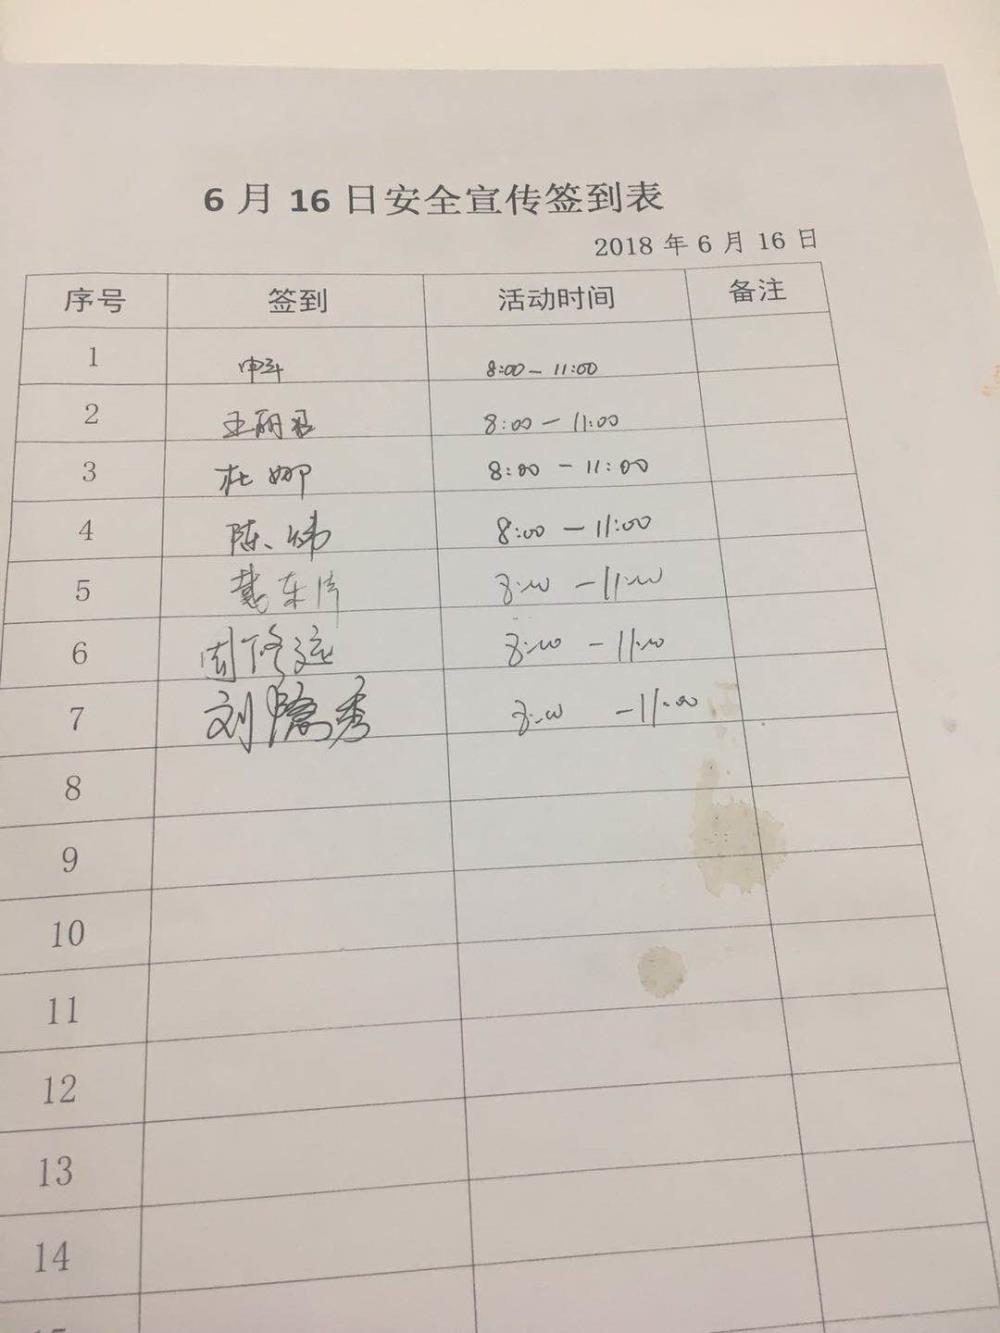 6月16日安全宣传签到表
2018年6月16日
序号 签到 活动时间 备注
1 申 8:00-11:00
2 王丽君 8:00-11:00
3 杜娜 8:00-11:00
4 陈炜 8:00-11:00
5 戴东 8:00-11:00
6 周修远 8:00-11:00
7 刘 秀 8:00-11:00
8
9
10
11
12
13
14